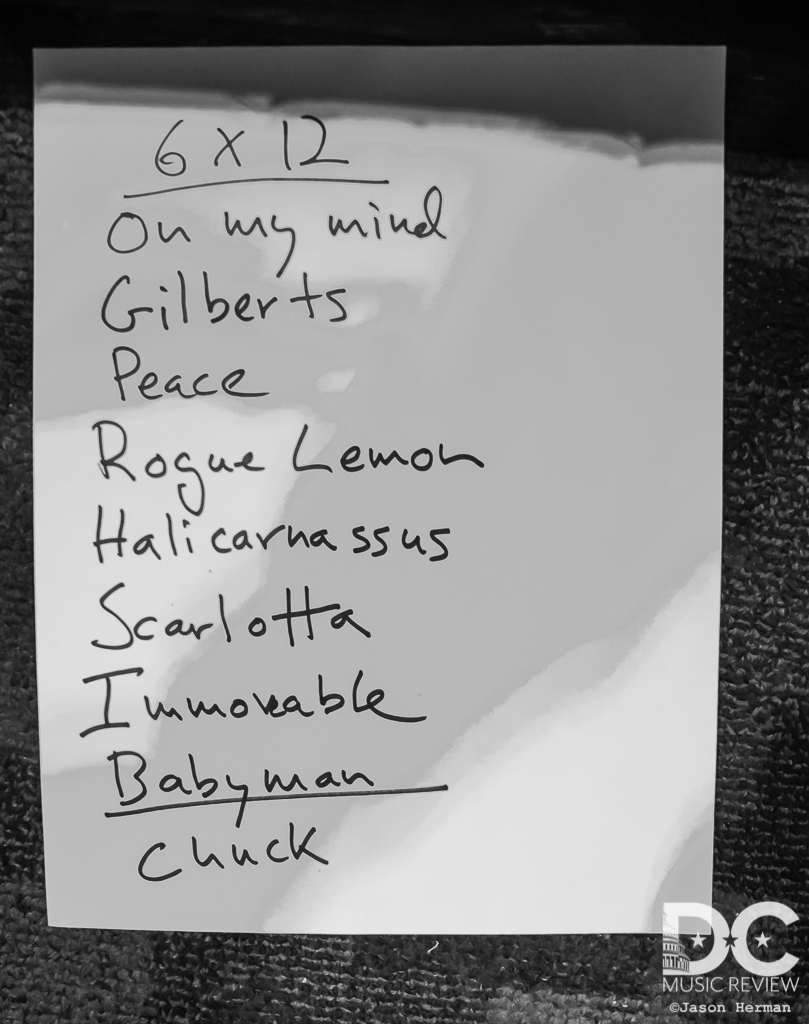 6 x 12
On my mind
Gilberts
Peace
Rogue Lemon
Halicarnassus
Scarlotta
Immovable
Babyman
Chuck
DC
MUSIC REVIEW
©Jason Herman